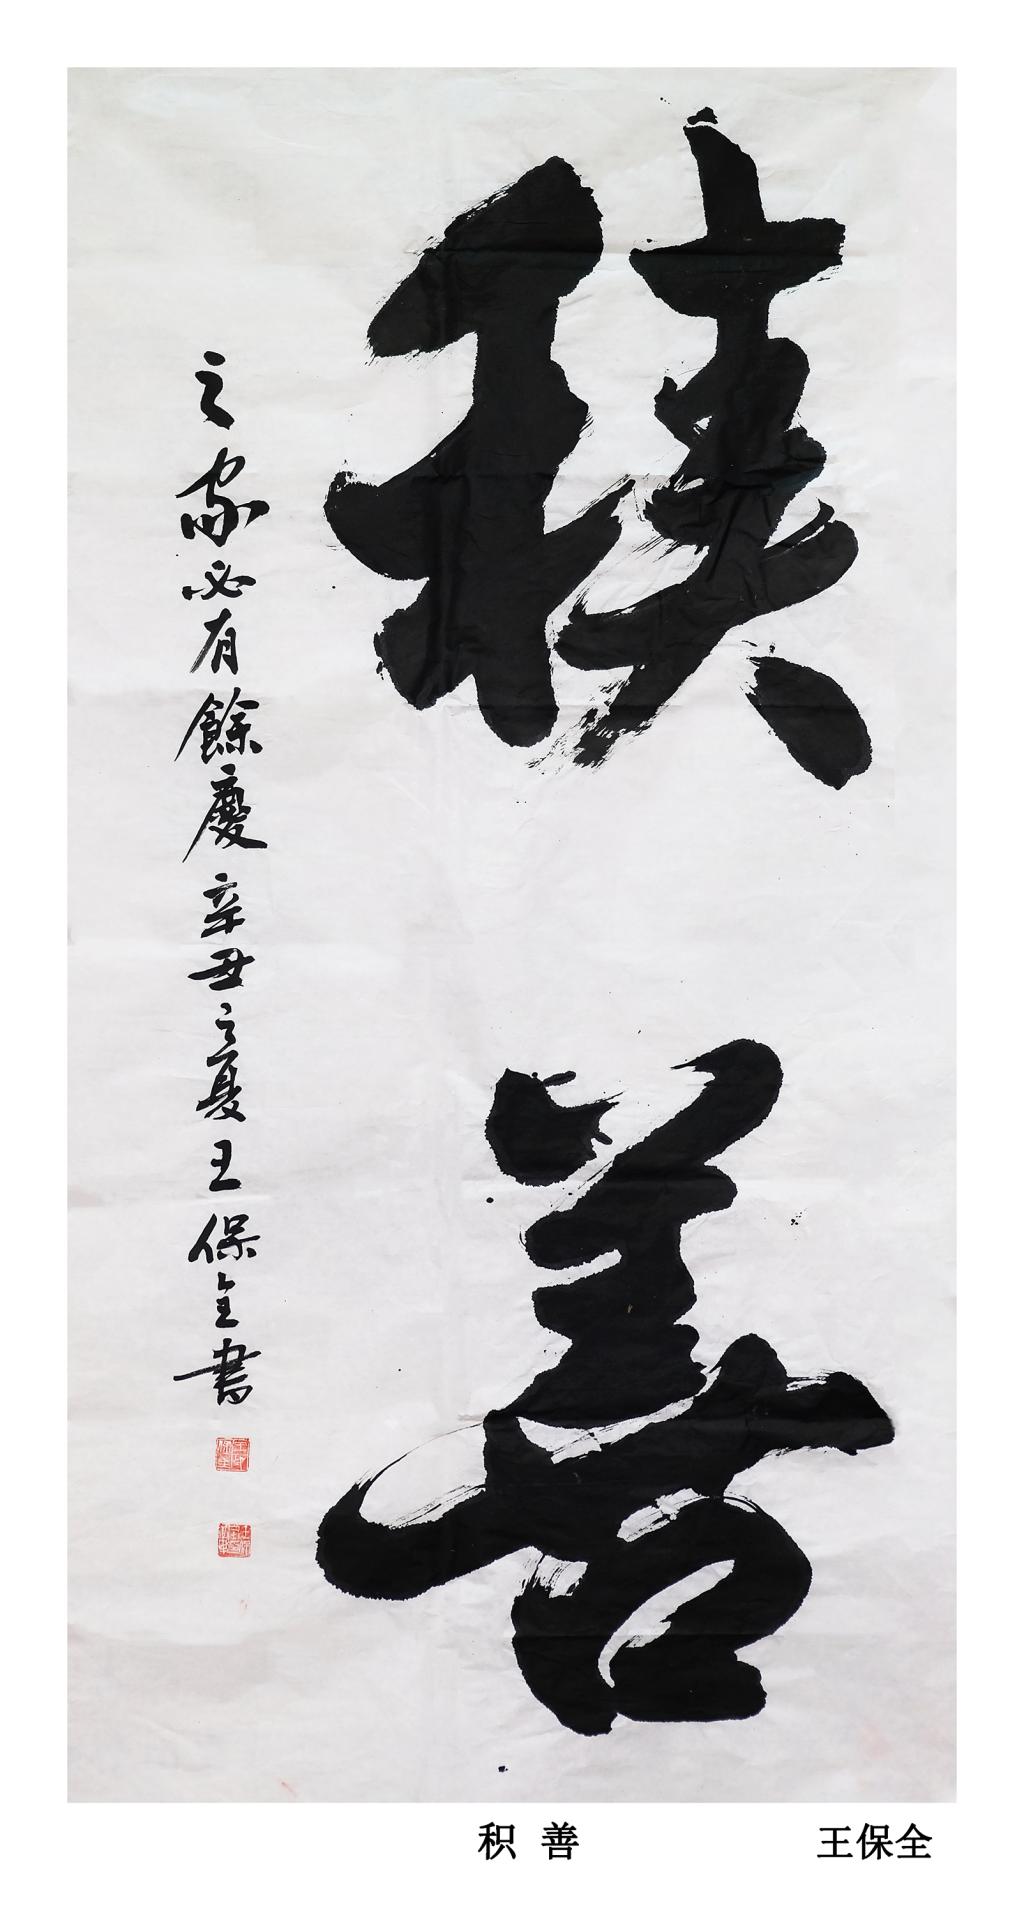 積善
之家必有餘慶辛丑之夏王保全書
积善
王保全